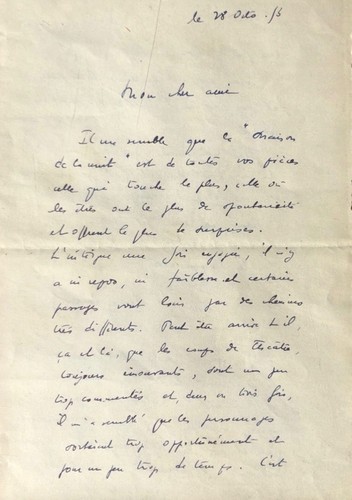 le 28 Octo. 53
Mon cher ami
Il me semble que la "Maison
de la nuit" est de toutes vos pièces
celle qui touche le plus, celle où
les êtres ont le plus de spontanéité
et offrent le plus de surprises.
L'intrigue une fois engagée, il n'y
a ni repos, ni faiblesse et certains
passages vont loin par des chemins
très différents. Peut être arrive-t-il,
çà et là, que les coups de théâtre,
toujours émouvants, sont un peu
trop commentés et, deux ou trois fois,
il m'a semblé que les personnages
sortaient trop opportunément et
pour un peu trop de temps. C'est